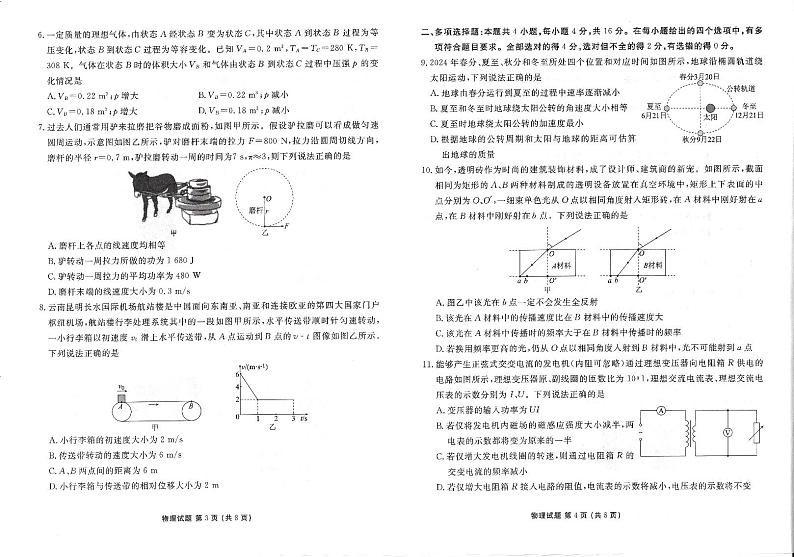 6.一定质量的理想气体,由状态A经状态B变为状态C,其中状态A到状态B过程为等
压变化,状态B到状态C过程为等容变化。已知VA=0.2 m³,TA=TC=280 K,TB=
308 K。气体在状态B时的体积大小VB和气体由状态B到状态C过程中压强p的变
化情况是
A.VB=0.22 m³;p增大 B.VB=0.22 m³;p减小
C.VB=0.18 m³;p增大 D.VB=0.18 m³;p减小
7.过去人们通常用驴来拉磨把谷物磨成面粉,如图甲所示。假设驴拉磨可以看成做匀速
圆周运动,示意图如图乙所示,驴对磨杆末端的拉力F=800 N,拉力沿圆周切线方向,
磨杆的半径r=0.7 m,驴拉磨转动一周的时间为7 s,π≈3,则下列说法正确的是
O
磨杆 r
F
甲
乙
A.磨杆上各点的线速度均相等
B.驴转动一周拉力所做的功为1 680 J
C.驴转动一周拉力的平均功率为480 W
D.磨杆末端的线速度大小为0.3 m/s
8.云南昆明长水国际机场航站楼是中国面向东南亚、南亚和连接欧亚的第四大国家门户
枢纽机场,航站楼行李处理系统其中的一段如图甲所示,水平传送带顺时针匀速转动,
一小行李箱以初速度v0滑上水平传送带,从A点运动到B点的v-t图像如图乙所示。
下列说法正确的是
v0
A
B
甲
v/(m·s⁻¹)
6
4
2
0 1 2 3 t/s
乙
A.小行李箱的初速度大小为2 m/s
B.传送带转动的速度大小为6 m/s
C.A、B两点间的距离为6 m
D.小行李箱与传送带的相对位移大小为2 m
物理试题 第3页(共8页)
二、多项选择题:本题共4小题,每小题4分,共16分。在每小题给出的四个选项中,有多
项符合题目要求。全部选对的得4分,选对但不全的得2分,有选错的得0分。
9.2024年春分、夏至、秋分和冬至所处四个位置和对应时间如图所示,地球沿椭圆轨道绕
太阳运动,下列说法正确的是
A.地球由春分运行到夏至的过程中速率逐渐减小
B.夏至和冬至时地球绕太阳公转的角速度大小相等
C.夏至时地球绕太阳公转的加速度最小
D.根据地球的公转周期和太阳与地球的距离可估算
出地球的质量
春分3月20日
公转轨道
夏至
6月21日
太阳
冬至
12月21日
秋分9月22日
10.如今,透明砖作为时尚的建筑装饰材料,成了设计师、建筑商的新宠。如图所示,截面
相同为矩形的A、B两种材料制成的透明设备放置在真空环境中,矩形上下表面的中
点分别为O、O′,一细束单色光从O点以相同角度射入矩形砖,在A材料中刚好射在a
点,在B材料中刚好射在b点。下列说法正确的是
O
A材料
a b O′
甲
O
B材料
a b O′
乙
A.图乙中该光在b点一定不会发生全反射
B.该光在A材料中的传播速度比在B材料中的传播速度大
C.该光在A材料中传播时的频率大于在B材料中传播时的频率
D.若换用频率更高的光,仍从O点以相同角度入射到B材料中,光不可能射到a点
11.能够产生正弦式交变电流的发电机(内阻可忽略)通过理想变压器向电阻箱R供电的
电路如图所示,理想变压器原、副线圈的匝数比为10∶1,理想交流电流表、理想交流电
压表的示数分别为I、U。下列说法正确的是
A.变压器的输入功率为UI
B.若仅将发电机内磁场的磁感应强度大小减半,两
电表的示数都将变为原来的一半
C.若仅增大发电机线圈的转速,则通过电阻箱R的
交变电流的频率减小
D.若仅增大电阻箱R接入电路的阻值,电流表的示数将减小,电压表的示数将不变
A
V
R
物理试题 第4页(共8页)